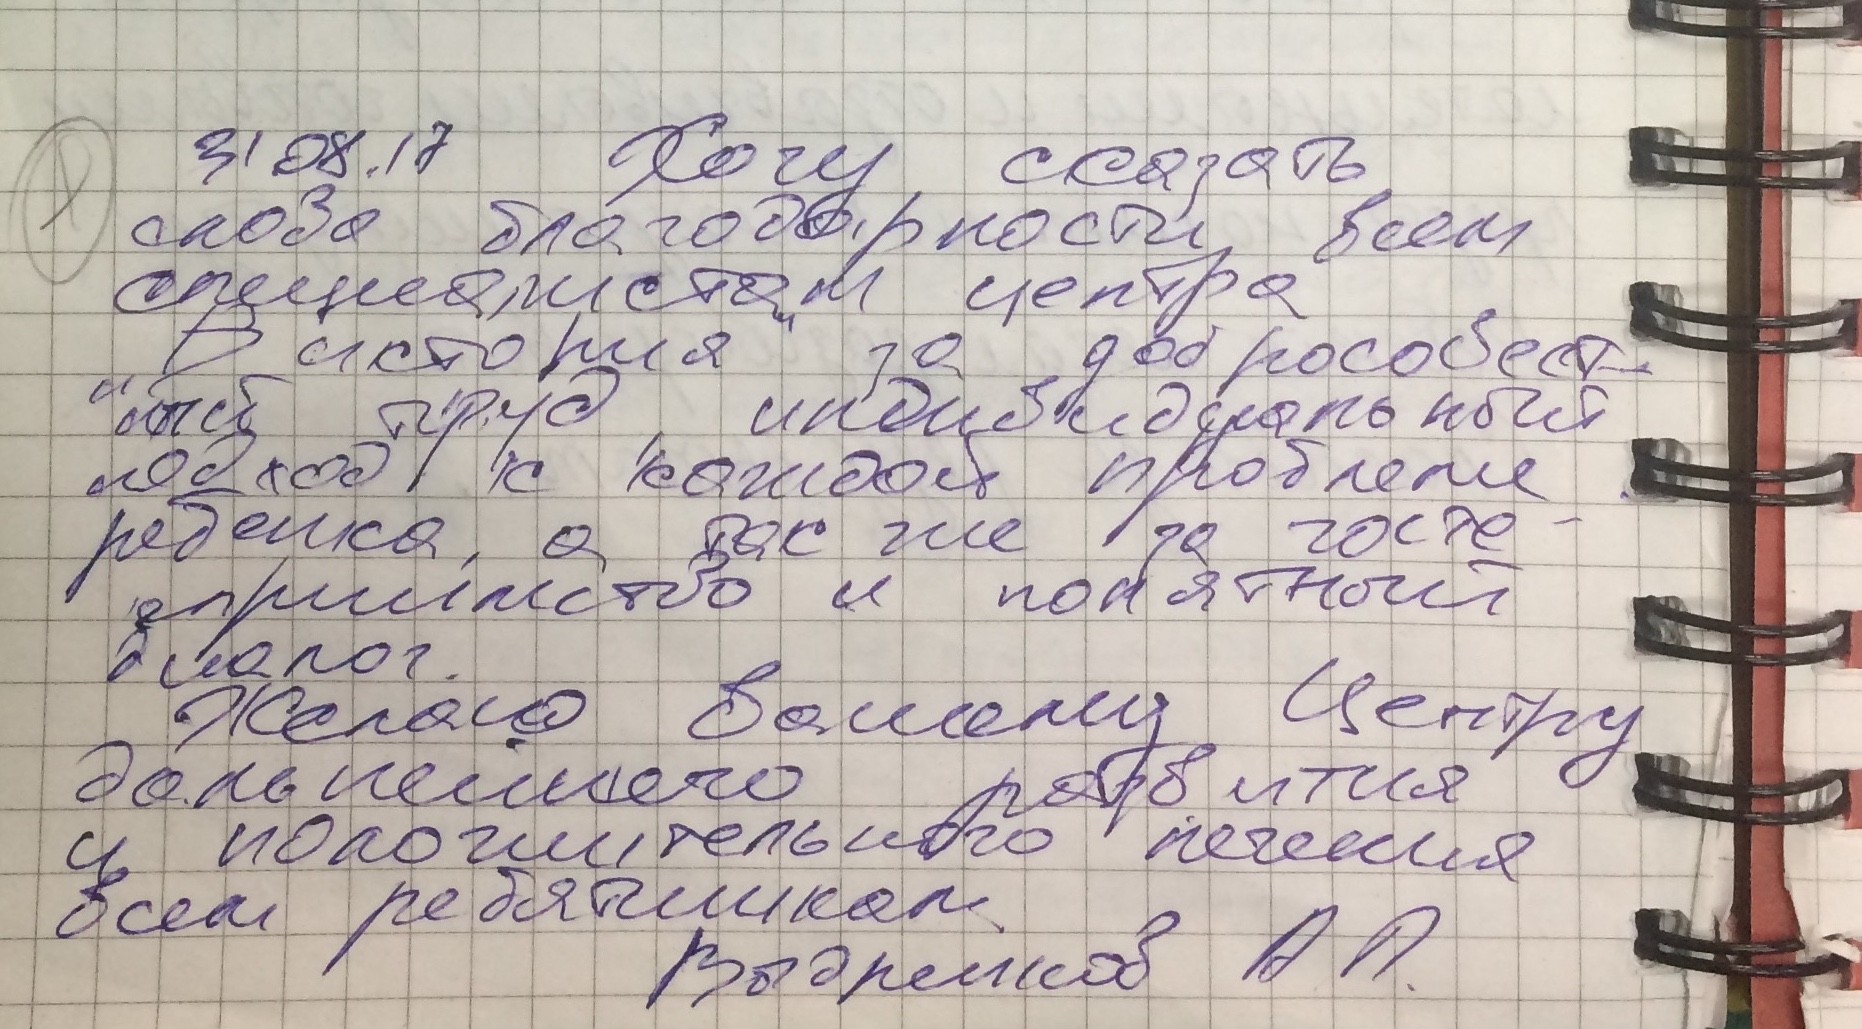 31 08.17 Хочу сказать
слова благодарности всем
специалистам центра
Виктория" за добросовест-
"ный труд, индивидуальный
подход к каждой проблеме
ребенка, а так же за госте-
приимство и понятный
диалог.
Желаю Вашему Центру
дальнейшего развития
и положительного лечения
всем ребятишкам
А П.